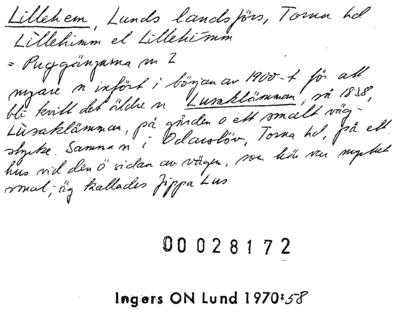 Lillehem, Lunds landsförs, Torna hd
Lillehimm el Lillehimm
= Puggängarna nr 2
nyare n infört i början av 1900-t för att
bli kvitt det äldre n Lusaklämman, så 1838,
Lusaklämman, på gården o ett smalt väg-
stycke. Samma n i Odarslöv, Torna hd, på ett
hus vid den ö sidan av vägen, som här var mycket
smal; äg kallades Jippa Lus
00028172
Ingers ON Lund 1970:58